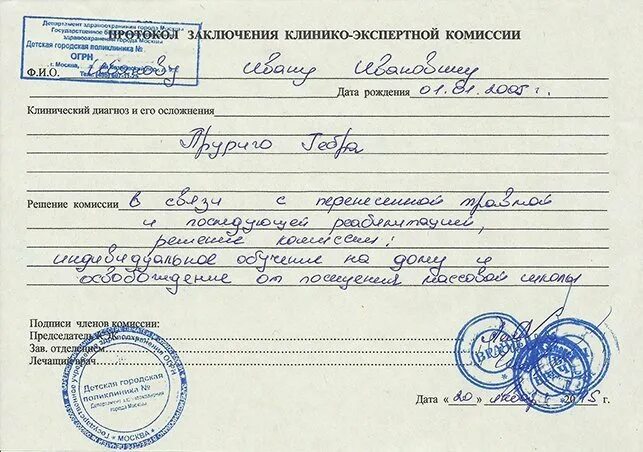 Департамент здравоохранения города Москвы
Государственное бюджетное
здравоохранения города Москвы
Детская городская поликлиника №
ОГРН
г. Москва,
ПРОТОКОЛ ЗАКЛЮЧЕНИЯ КЛИНИКО-ЭКСПЕРТНОЙ КОМИССИИ
Ф.И.О. Иванову Ивану Ивановичу
Дата рождения 01.01.2005 г.
Клинический диагноз и его осложнения
Пруриго Гебра
Решение комиссии в связи с перенесенной травмой
и последующей реабилитацией,
решение комиссии:
индивидуальное обучение на дому и
освобождение от посещения массовой школы
Подписи членов комиссии:
Председатель КЭК
Зав. отделением
Лечащий врач
Детская городская
поликлиника №
Департамент здравоохранения
города Москвы
* МОСКВА *
ВРАЧ
Дата «20» 2015 г.